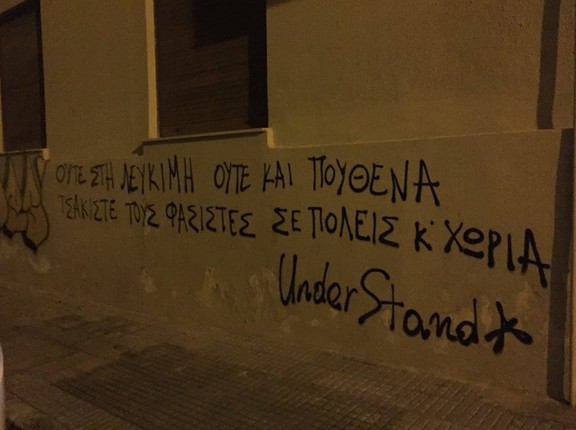 ΟΥΤΕ ΣΤΗ ΛΕΥΚΙΜΗ ΟΥΤΕ ΚΑΙ ΠΟΥΘΕΝΑ
ΤΣΑΚΙΣΤΕ ΤΟΥΣ ΦΑΣΙΣΤΕΣ ΣΕ ΠΟΛΕΙΣ Κ' ΧΩΡΙΑ
UnderStand*